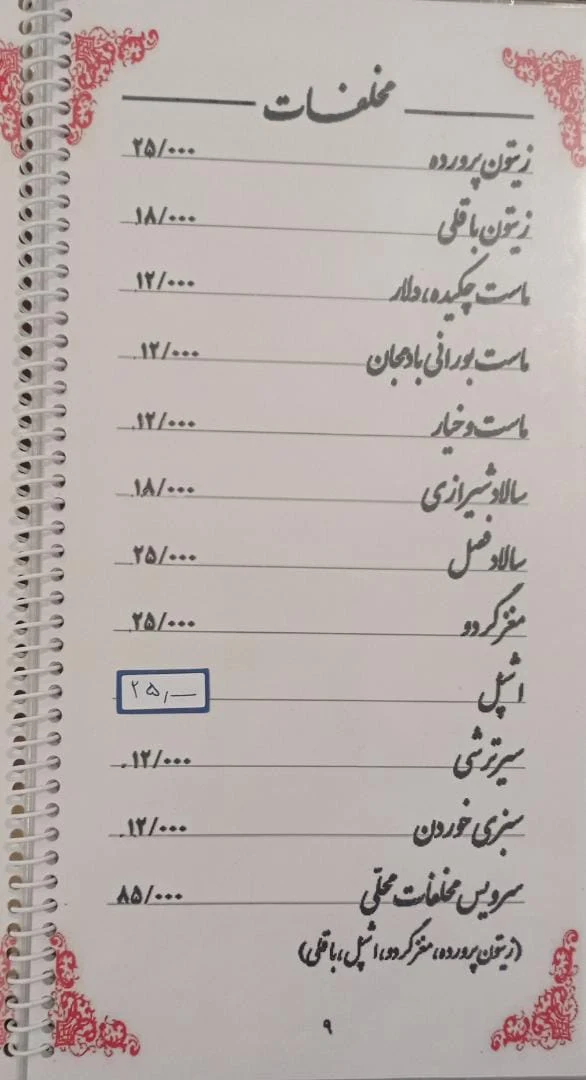 مخلفات
زیتون پرورده ۲۵/۰۰۰
زیتون باقلی ۱۸/۰۰۰
ماست چکیده، دلار ۱۲/۰۰۰
ماست بورانی بادمجان ۱۲/۰۰۰
ماست و خیار ۱۲/۰۰۰
سالاد شیرازی ۱۸/۰۰۰
سالاد فصل ۲۵/۰۰۰
مغز گردو ۲۵/۰۰۰
اشپل ۲۵,—
سیر ترشی ۱۲/۰۰۰
سبزی خوردن ۱۲/۰۰۰
سرویس مخلفات محلّی ۸۵/۰۰۰
(زیتون پرورده، مغز گردو، اشپل، باقلی)
۹